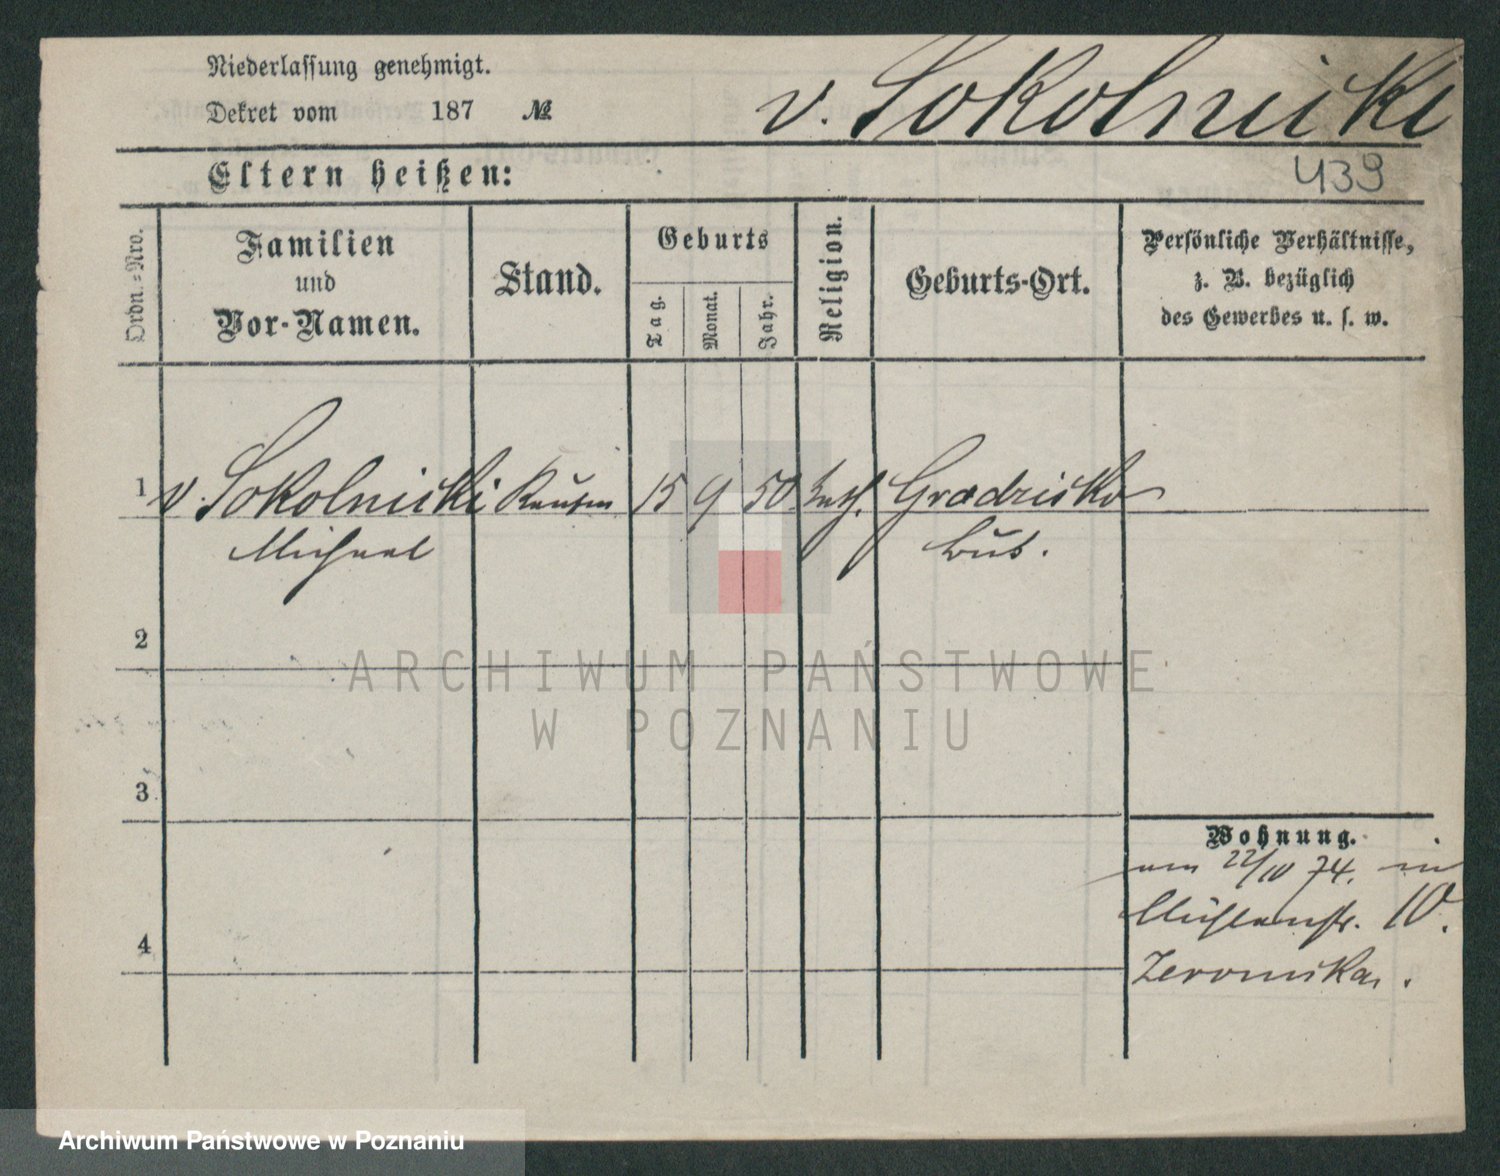 Niederlassung genehmigt.
Dekret vom 187 №
v. Sokolnicki
Eltern heißen:
439
Ordn.-Nro.
Familien
und
Vor-Namen.
Stand.
Geburts
Tag.
Monat.
Jahr.
Religion.
Geburts-Ort.
Persönliche Verhältnisse,
z. B. bezüglich
des Gewerbes u. s. w.
1 v. Sokolnicki Kaufm 15 9 50 kath. Grodzisko
Michael
2
3
4
Wohnung.
am 22/10 74. in
Mühlenstr. 10.
Zeromska.
ARCHIWUM PAŃSTWOWE
W POZNANIU
Archiwum Państwowe w Poznaniu